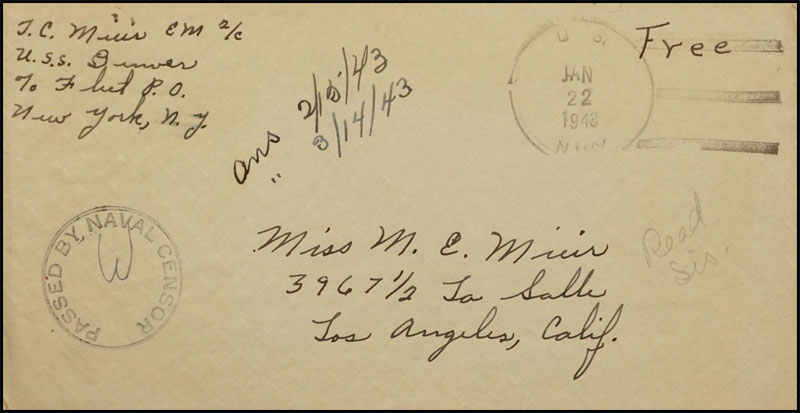 T. C. Muir EM 2/c
U.S.S. Denver
c/o Fleet P.O.
New York, N.Y.
ans 2/15/43
" 3/14/43
U. S.
JAN
22
1943
Free
PASSED BY NAVAL CENSOR
Miss M. E. Muir
3967 1/2 La Salle
Los Angeles, Calif.
Read
Sis.